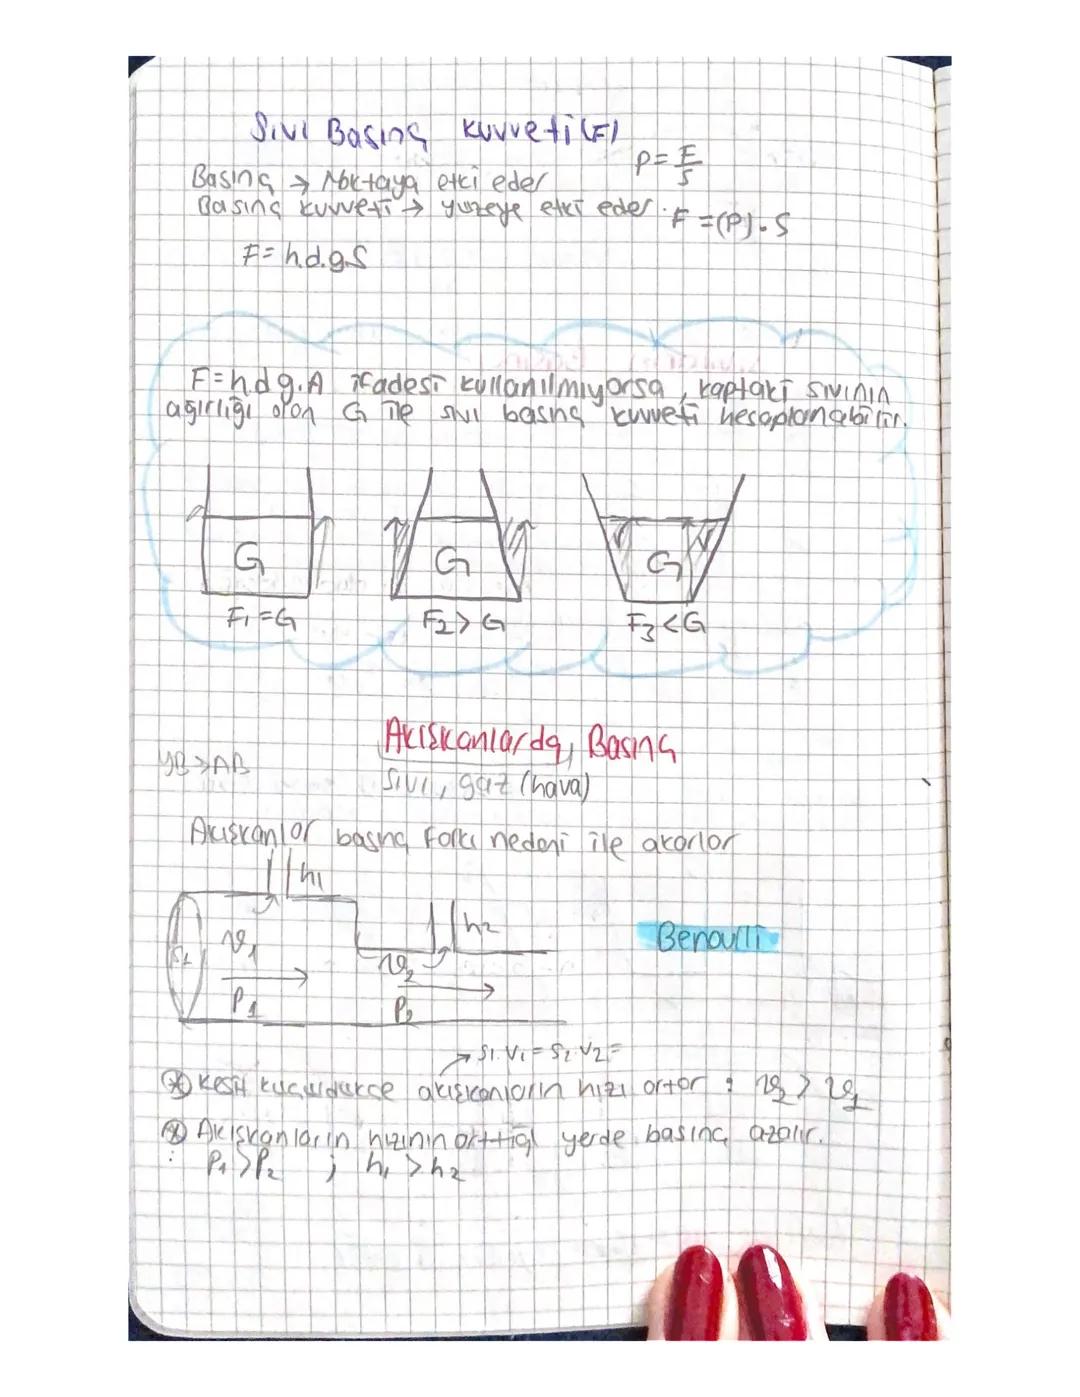 Sıvı Basınç Kuvveti (F)
P = F/S
Basınç → Noktaya etki eder
Basınç kuvveti → yüzeye etki eder.
F = (P).S
F = h.d.g.S
F = h.d.g.A ifadesi kullanılmıyorsa, kaptaki sıvının
ağırlığı olan G ile sıvı basınç kuvveti hesaplanabilir.
G G G
F1 = G F2 > G F3 < G
Akışkanlarda Basınç
YB > AB
Sıvı, gaz (hava)
Akışkanlar basınç farkı nedeni ile akarlar
h1
h2
Benoulli
S1
v1
v2
P1
P2
→ S1.V1 = S2.V2 =
Kesit küçüldükçe akışkanların hızı artar : v2 > v1
Akışkanların hızının arttığı yerde basınç azalır.
: P1 > P2 ; h1 > h2